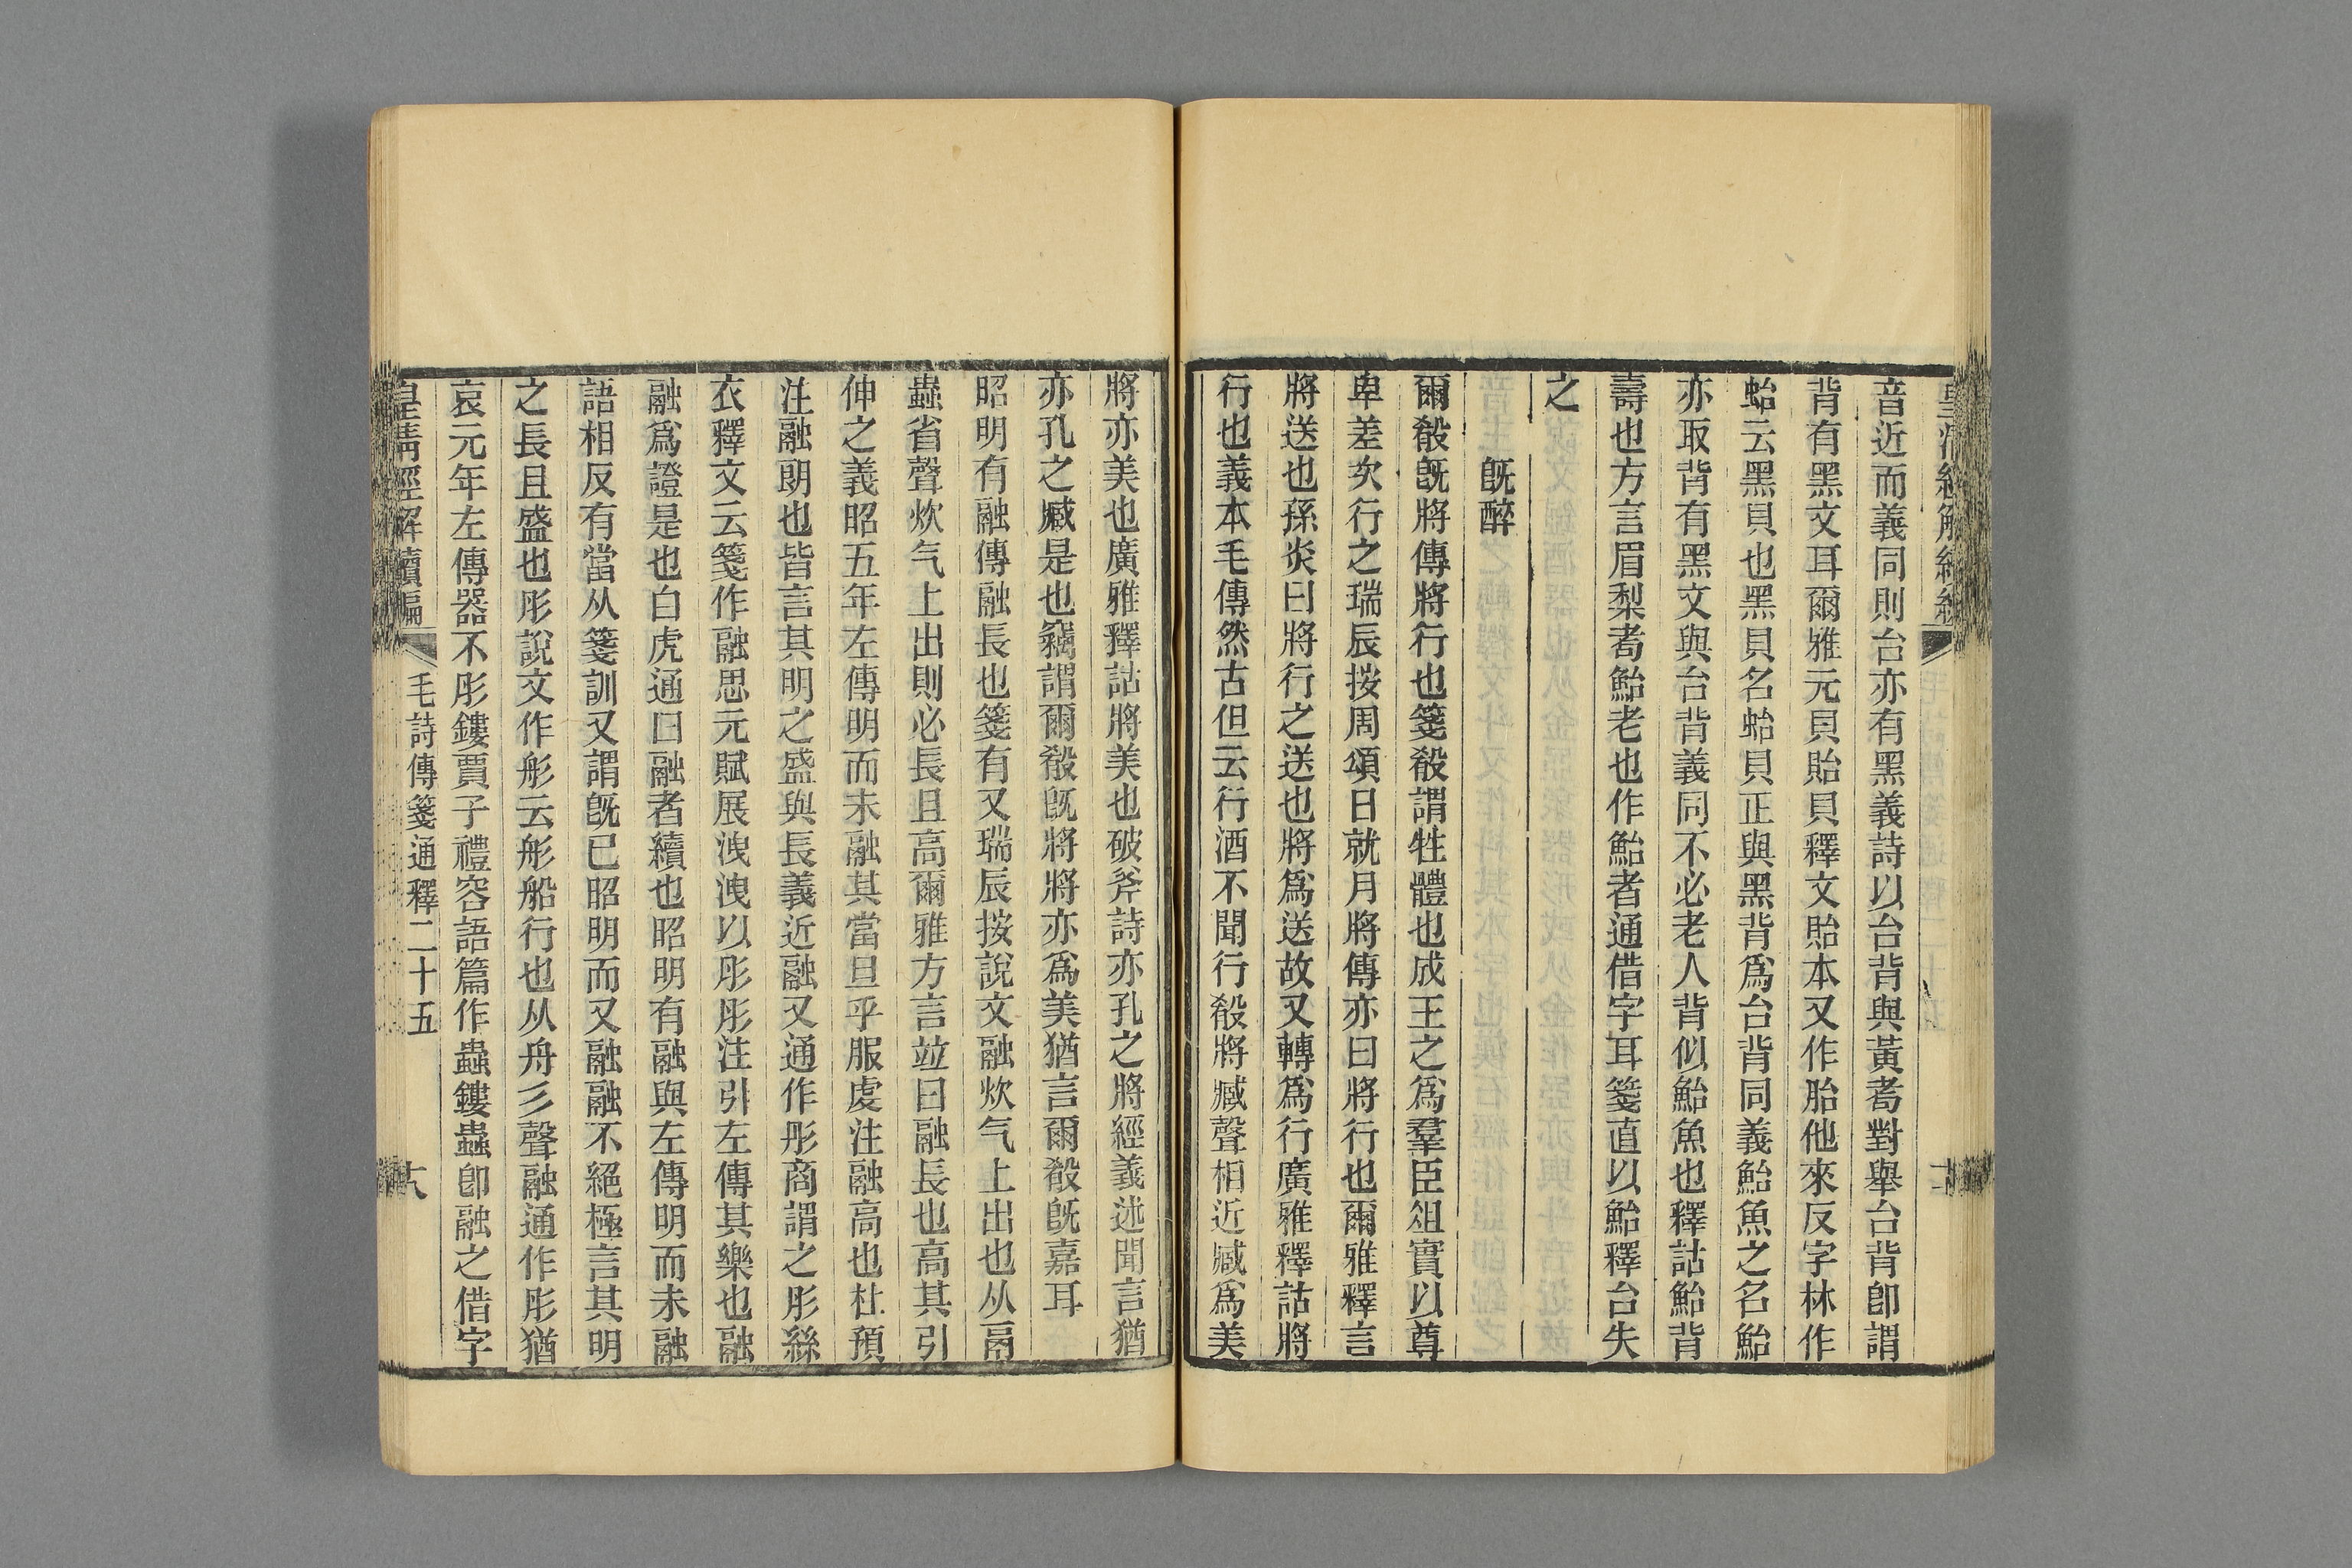 音近而義同則台亦有黑義詩以台背與黃耇對舉台背卽謂
背有黑文耳爾雅元貝貽貝釋文貽本又作胎他來反字林作
蛤云黑貝也黑貝名蛤貝正與黑背爲台背同義鮐魚之名鮐
亦取背有黑文與台背義同不必老人背似鮐魚也釋詁鮐背
壽也方言眉梨耇鮐老也作鮐者通借字耳箋直以鮐釋台失
之
旣醉
爾殽旣將傳將行也箋殽謂牲體也成王之爲羣臣俎實以尊
卑差次行之瑞辰按周頌日就月將傳亦曰將行也爾雅釋言
將送也孫炎曰將行之送也將爲送故又轉爲行廣雅釋詁將
行也義本毛傳然古但云行酒不聞行殽將臧聲相近臧爲美
將亦美也廣雅釋詁將美也破斧詩亦孔之將經義述聞言猶
亦孔之臧是也竊謂爾殽旣將將亦爲美猶言爾殽旣嘉耳
昭明有融傳融長也箋有又瑞辰按說文融炊气上出也从鬲
蟲省聲炊气上出則必長且高爾雅方言竝曰融長也高其引
伸之義昭五年左傳明而未融其當旦乎服虔注融高也杜預
注融朗也皆言其明之盛與長義近融又通作彤商謂之彤絲
衣釋文云箋作融思元賦展洩洩以彤彤注引左傳其樂也融
融爲證是也白虎通曰融者續也昭明有融與左傳明而未融
語相反有當从箋訓又謂旣已昭明而又融融不絕極言其明
之長且盛也彤說文作彨云彨船行也从舟彡聲融通作彤猶
哀元年左傳器不彤鏤賈子禮容語篇作蟲鏤蟲卽融之借字
皇淸經解續編 毛詩傳箋通釋二十五 十六